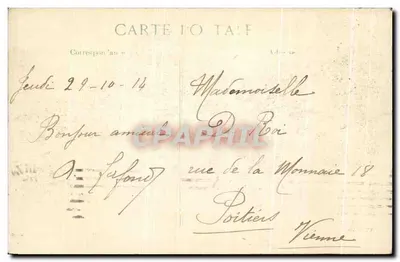 CARTE POSTALE
Correspondance
Adresse
Jeudi 29-10-14
Bonjour amical
A. Lafond
Mademoiselle
D. Roi
rue de la Monnaie 18
Poitiers
Vienne
CPAPHIL